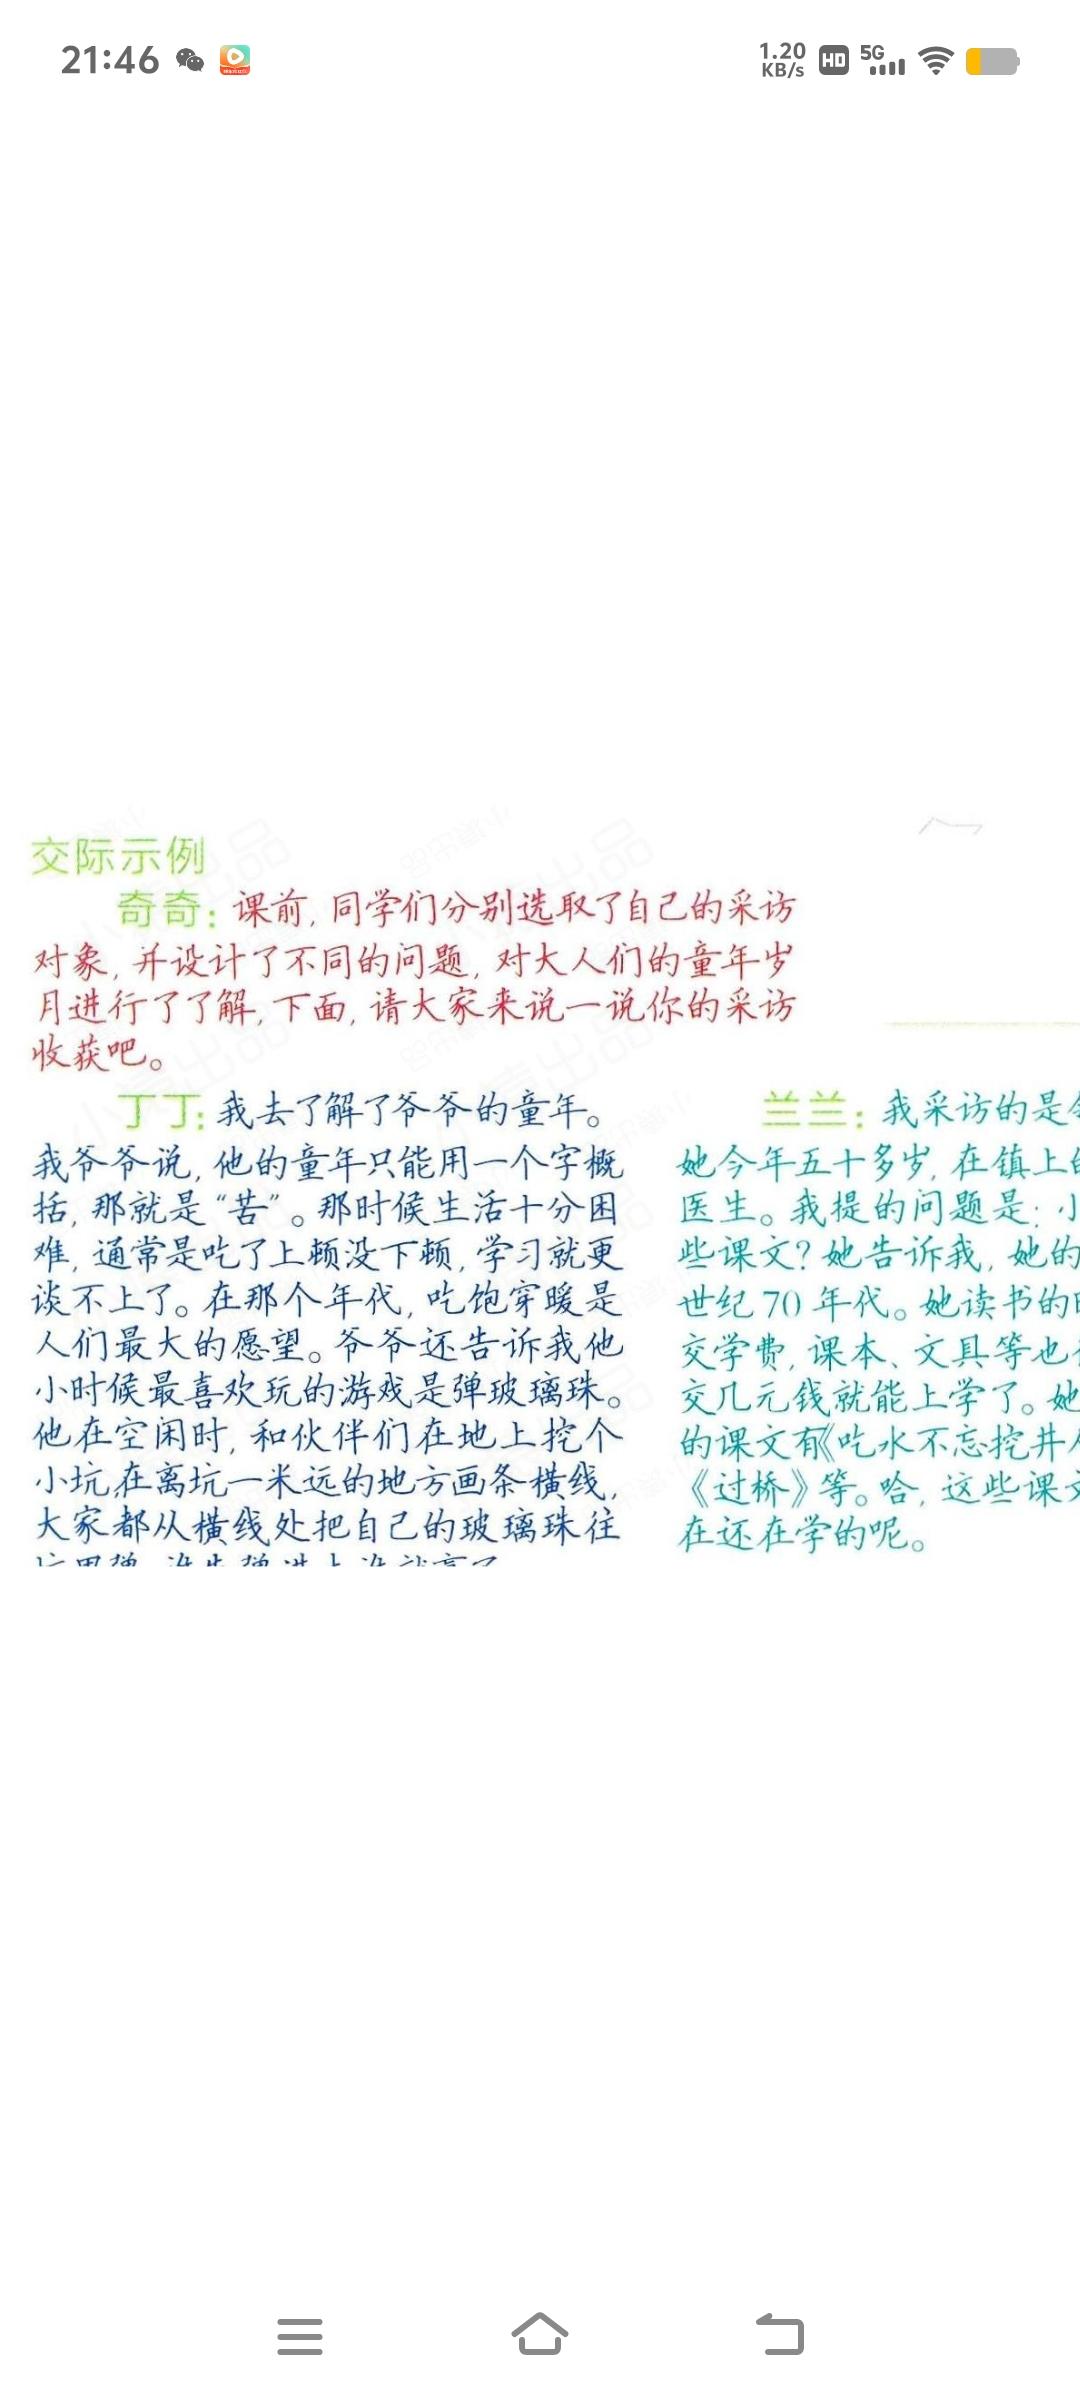 21:46
1.20
KB/s
HD
5G
交际示例
奇奇：课前，同学们分别选取了自己的采访
对象，并设计了不同的问题，对大人们的童年岁
月进行了了解，下面，请大家来说一说你的采访
收获吧。
丁丁：我去了解了爷爷的童年。
我爷爷说，他的童年只能用一个字概
括，那就是“苦”。那时候生活十分困
难，通常是吃了上顿没下顿，学习就更
谈不上了。在那个年代，吃饱穿暖是
人们最大的愿望。爷爷还告诉我他
小时候最喜欢玩的游戏是弹玻璃珠。
他在空闲时，和伙伴们在地上挖个
小坑，在离坑一米远的地方画条横线，
大家都从横线处把自己的玻璃珠往
兰兰：我采访的是
她今年五十多岁，在镇上的
医生。我提的问题是：小
些课文？她告诉我，她的
世纪70年代。她读书的时
交学费，课本、文具等也
交几元钱就能上学了。她
的课文有《吃水不忘挖井人
《过桥》等。哈，这些课文
在还在学的呢。